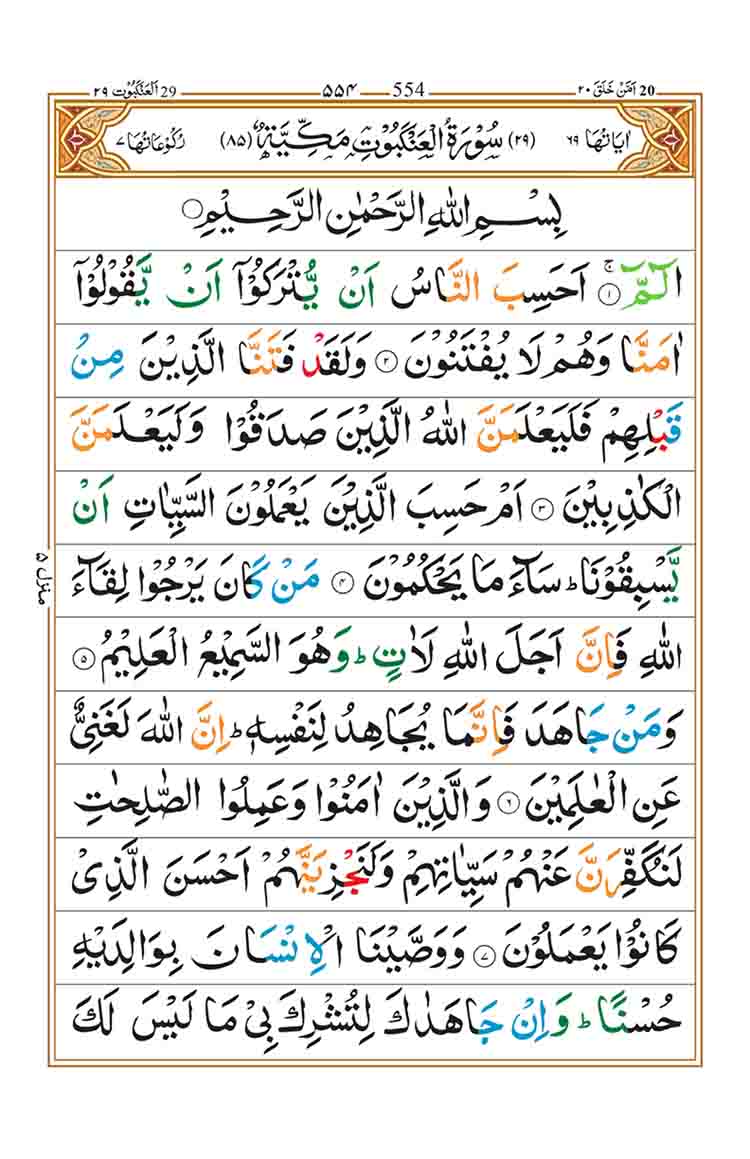 20 اَمَّنْ خَلَقَ ۲۰ 554 ۵۵۴ 29 اَلْعَنْكَبُوْت ۲۹
اٰيَاتُهَا ۶۹ (۲۹) سُوْرَةُ الْعَنْكَبُوْتِ مَكِّيَّةٌ (۸۵) رُكُوْعَاتُهَا ۷
بِسْمِ اللّٰهِ الرَّحْمٰنِ الرَّحِيْمِ ۝
الٓمّٓ ۚ‏ ۝۱ اَحَسِبَ النَّاسُ اَنْ يُّتْرَكُوْۤا اَنْ يَّقُوْلُوْۤا
اٰمَنَّا وَهُمْ لَا يُفْتَنُوْنَ ۝۲ وَلَقَدْ فَتَنَّا الَّذِيْنَ مِنْ
قَبْلِهِمْ فَلَيَعْلَمَنَّ اللّٰهُ الَّذِيْنَ صَدَقُوْا وَلَيَعْلَمَنَّ
الْكٰذِبِيْنَ ۝۳ اَمْ حَسِبَ الَّذِيْنَ يَعْمَلُوْنَ السَّيِّاٰتِ اَنْ
يَّسْبِقُوْنَا ؕ سَآءَ مَا يَحْكُمُوْنَ ۝۴ مَنْ كَانَ يَرْجُوْا لِقَآءَ
اللّٰهِ فَاِنَّ اَجَلَ اللّٰهِ لَاٰتٍ ؕ وَهُوَ السَّمِيْعُ الْعَلِيْمُ ۝۵
وَمَنْ جَاهَدَ فَاِنَّمَا يُجَاهِدُ لِنَفْسِهٖ ؕ اِنَّ اللّٰهَ لَغَنِىٌّ
عَنِ الْعٰلَمِيْنَ ۝۶ وَالَّذِيْنَ اٰمَنُوْا وَعَمِلُوا الصّٰلِحٰتِ
لَنُكَفِّرَنَّ عَنْهُمْ سَيِّاٰتِهِمْ وَلَنَجْزِيَنَّهُمْ اَحْسَنَ الَّذِىْ
كَانُوْا يَعْمَلُوْنَ ۝۷ وَوَصَّيْنَا الْاِنْسَانَ بِوَالِدَيْهِ
حُسْنًا ؕ وَاِنْ جَاهَدٰكَ لِتُشْرِكَ بِىْ مَا لَيْسَ لَكَ
منزل ۵